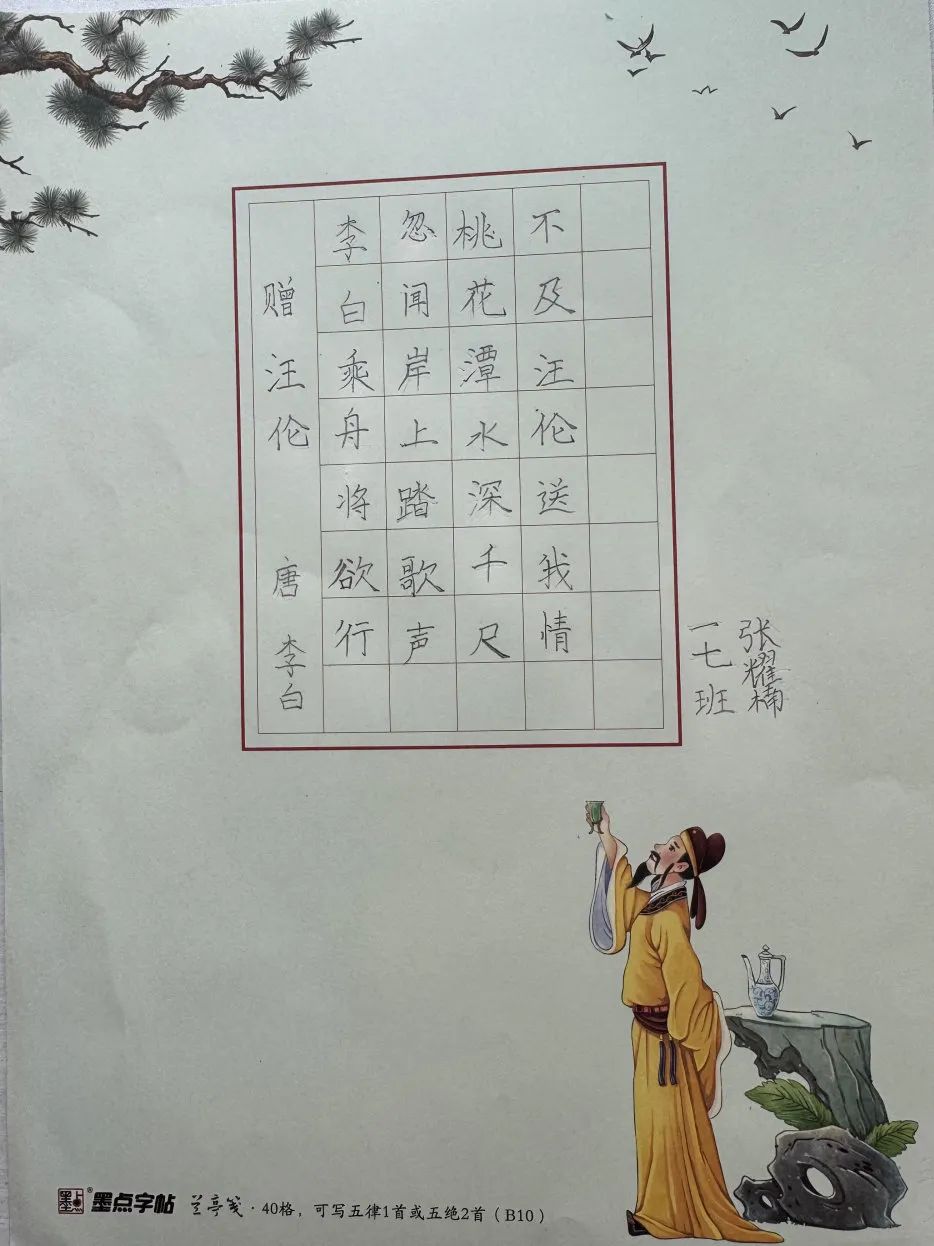 赠汪伦 唐 李白
李白乘舟将欲行
忽闻岸上踏歌声
桃花潭水深千尺
不及汪伦送我情
一七班
张耀楠
墨点字帖 兰亭笺·40格，可写五律1首或五绝2首（B10）